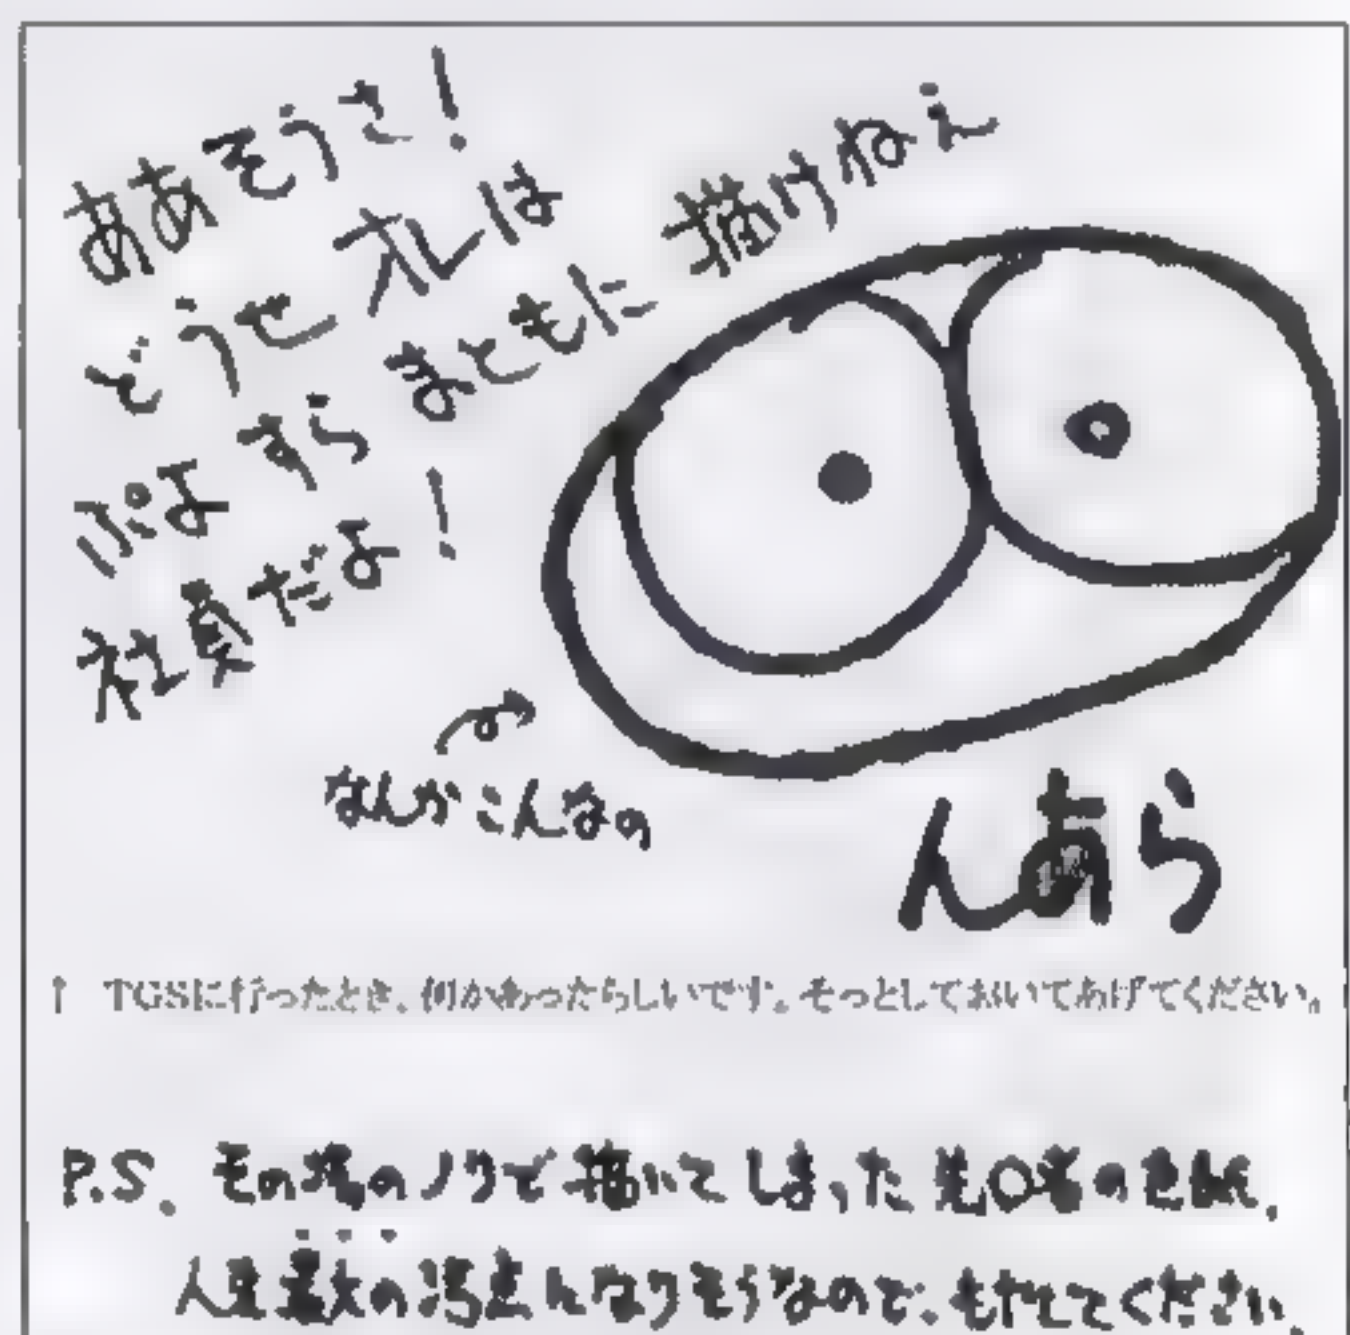 ああそうさ!
どうせオレは
ぷよすらまともに描けねぇ
社員だよ!
なんかこんなの
んあら
↑ TGSに行ったとき、何かあったらしいです。そっとしておいてあげてください。
P.S. その場のノリで描いてしまった 〇 の色紙。
人生最大の汚点になりそうなので、もやしてください。